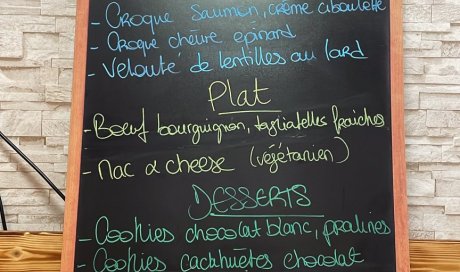 - Croque Saumon, crème ciboulette
- Croque chèvre epinard
- Velouté de lentilles au lard
Plat
- Bœuf bourguignon, tagliatelles fraiches
- Mac & cheese (végétarien)
DESSERTS
- Cookies chocolat blanc, pralines
- Cookies cacahuètes chocolat